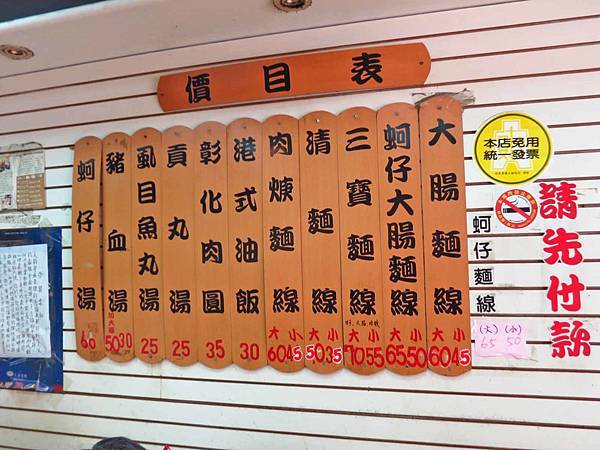 價目表
大腸麵線 大60 小45
蚵仔大腸麵線 大65 小50
三寶麵線 大70 小55
清麵線 大50 小35
肉焿麵線 大60 小45
港式油飯 30
彰化肉圓 35
貢丸湯 25
虱目魚丸湯 25
豬血湯 30
加大腸 50
蚵仔湯
本店免用
統一發票
請先付款
蚵仔麵線
(大) (小)
65 50